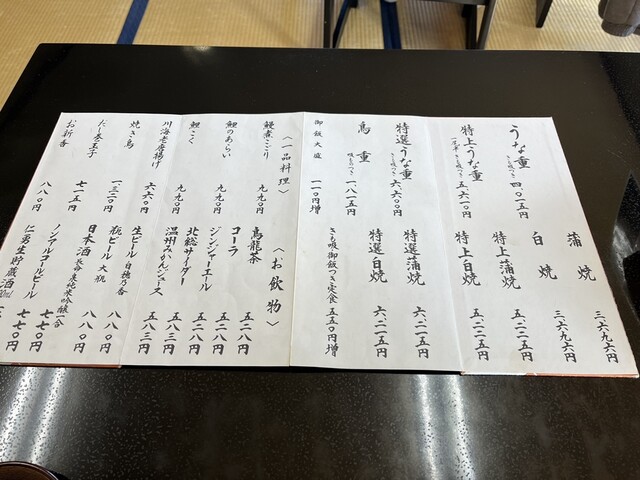 うな重 きも吸つき 四、〇一五円
特上うな重 きも吸つき 五、六一〇円
特選うな重 きも吸つき 六、六〇〇円
鳥重 吸ものつき 一、八一五円
御飯大盛 一一〇円増
蒲焼 三、六九六円
白焼 三、六九六円
特上蒲焼 五、二二五円
特上白焼 五、二二五円
特選蒲焼 六、二一五円
特選白焼 六、二一五円
きも吸御飯つき定食 五五〇円増
〈一品料理〉
鰻煮こごり 九九〇円
鯉のあらい 九九〇円
鯉こく 九九〇円
川海老唐揚げ 六六〇円
焼き鳥 一、三二〇円
だし巻玉子 七一五円
お新香 八八〇円
〈お飲物〉
烏龍茶 五二八円
コーラ 五二八円
ジンジャーエール 五二八円
北総サイダー 五八三円
温州みかんジュース 五八三円
生ビール 白穂乃香 八八〇円
瓶ビール 大瓶 八八〇円
日本酒 長命泉純米吟醸一合 八八〇円
ノンアルコールビール 七七〇円
仁勇生貯蔵酒 七七〇円